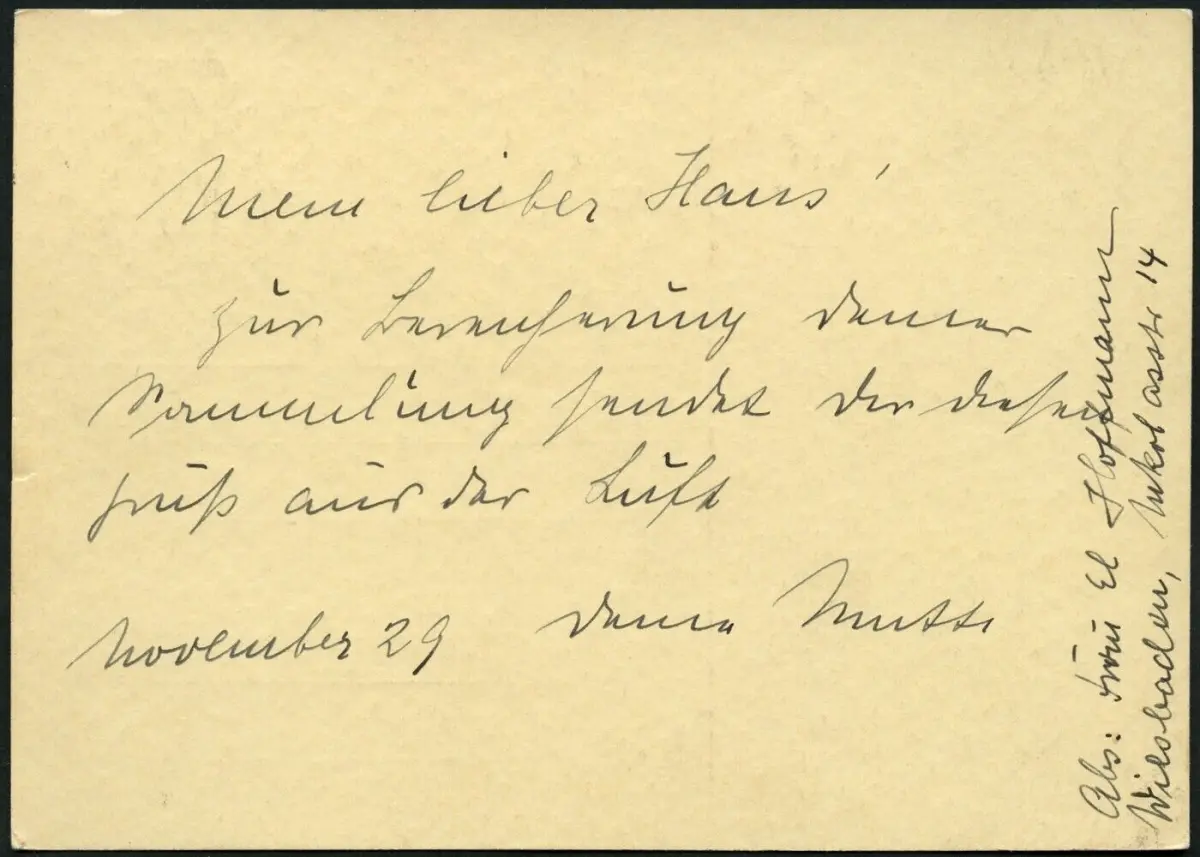 Mein lieber Hans!
zur Bereicherung deiner
Sammlung sendet dir diesen
Gruß aus der Luft
deine Mutti
November 29
Abs: Frau El Hoffmann
Wiesbaden, Nikolasstr 14